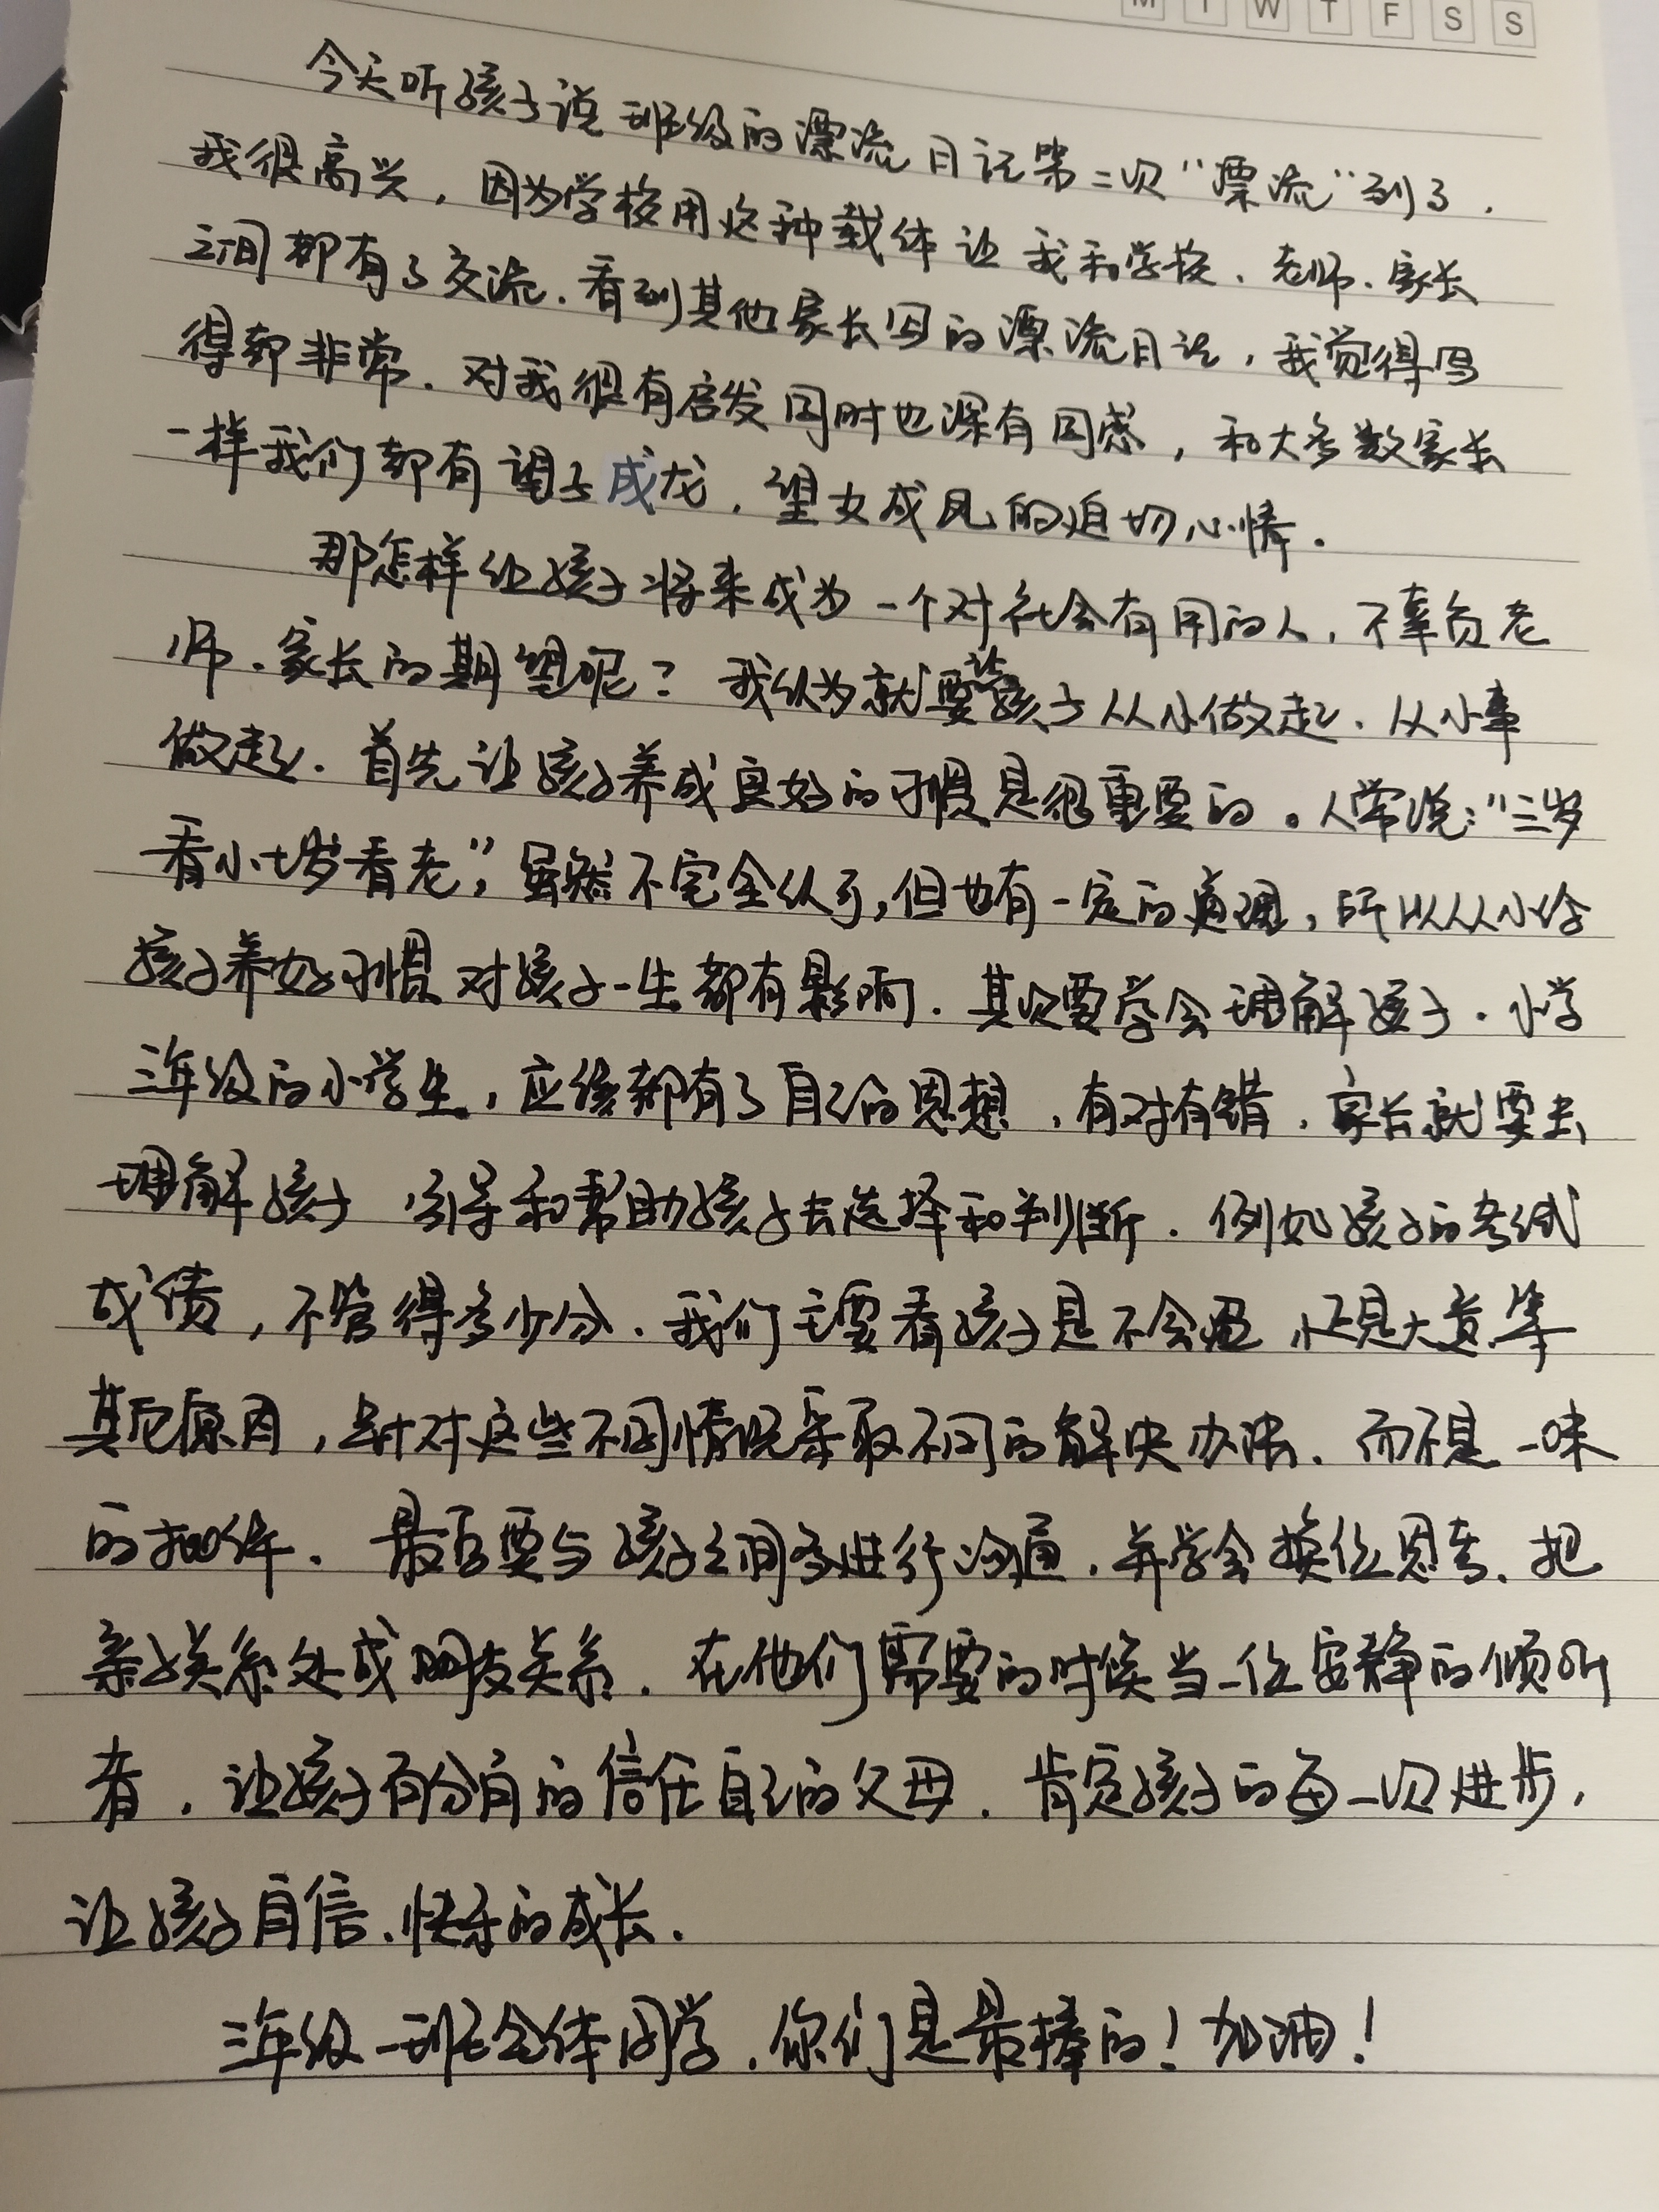 M T W T F S S
今天听孩子说班级的漂流日记第二次“漂流”到了.
我很高兴，因为学校用这种载体让我和学校、老师、家长
之间都有了交流.看到其他家长写的漂流日记，我觉得写
得都非常.对我很有启发同时也深有同感，和大多数家长
一样我们都有望子成龙，望女成凤的迫切心情.
那怎样让孩子将来成为一个对社会有用的人，不辜负老
师、家长的期望呢？我认为就要让孩子从小做起、从小事
做起.首先让孩子养成良好的习惯是很重要的。人常说：“三岁
看小七岁看老”，虽然不完全认可，但也有一定的道理，所以从小给
孩子养好习惯对孩子一生都有影响.其次要学会理解孩子.小学
三年级的小学生，应该都有了自己的思想，有对有错，家长就要去
理解孩子 引导和帮助孩子去选择和判断.例如孩子的考试
成绩，不管得多少分.我们主要看孩子是不会还是大意等
其它原因，针对这些不同情况采取不同的解决办法.而不是一味
的批评.最后要与孩子之间多进行沟通.并学会换位思考、把
亲子关系处成朋友关系.在他们需要的时候当一位安静的倾听
者，让孩子百分百的信任自己的父母.肯定孩子的每一次进步，
让孩子自信、快乐的成长.
三年级一班全体同学，你们是最棒的！加油！